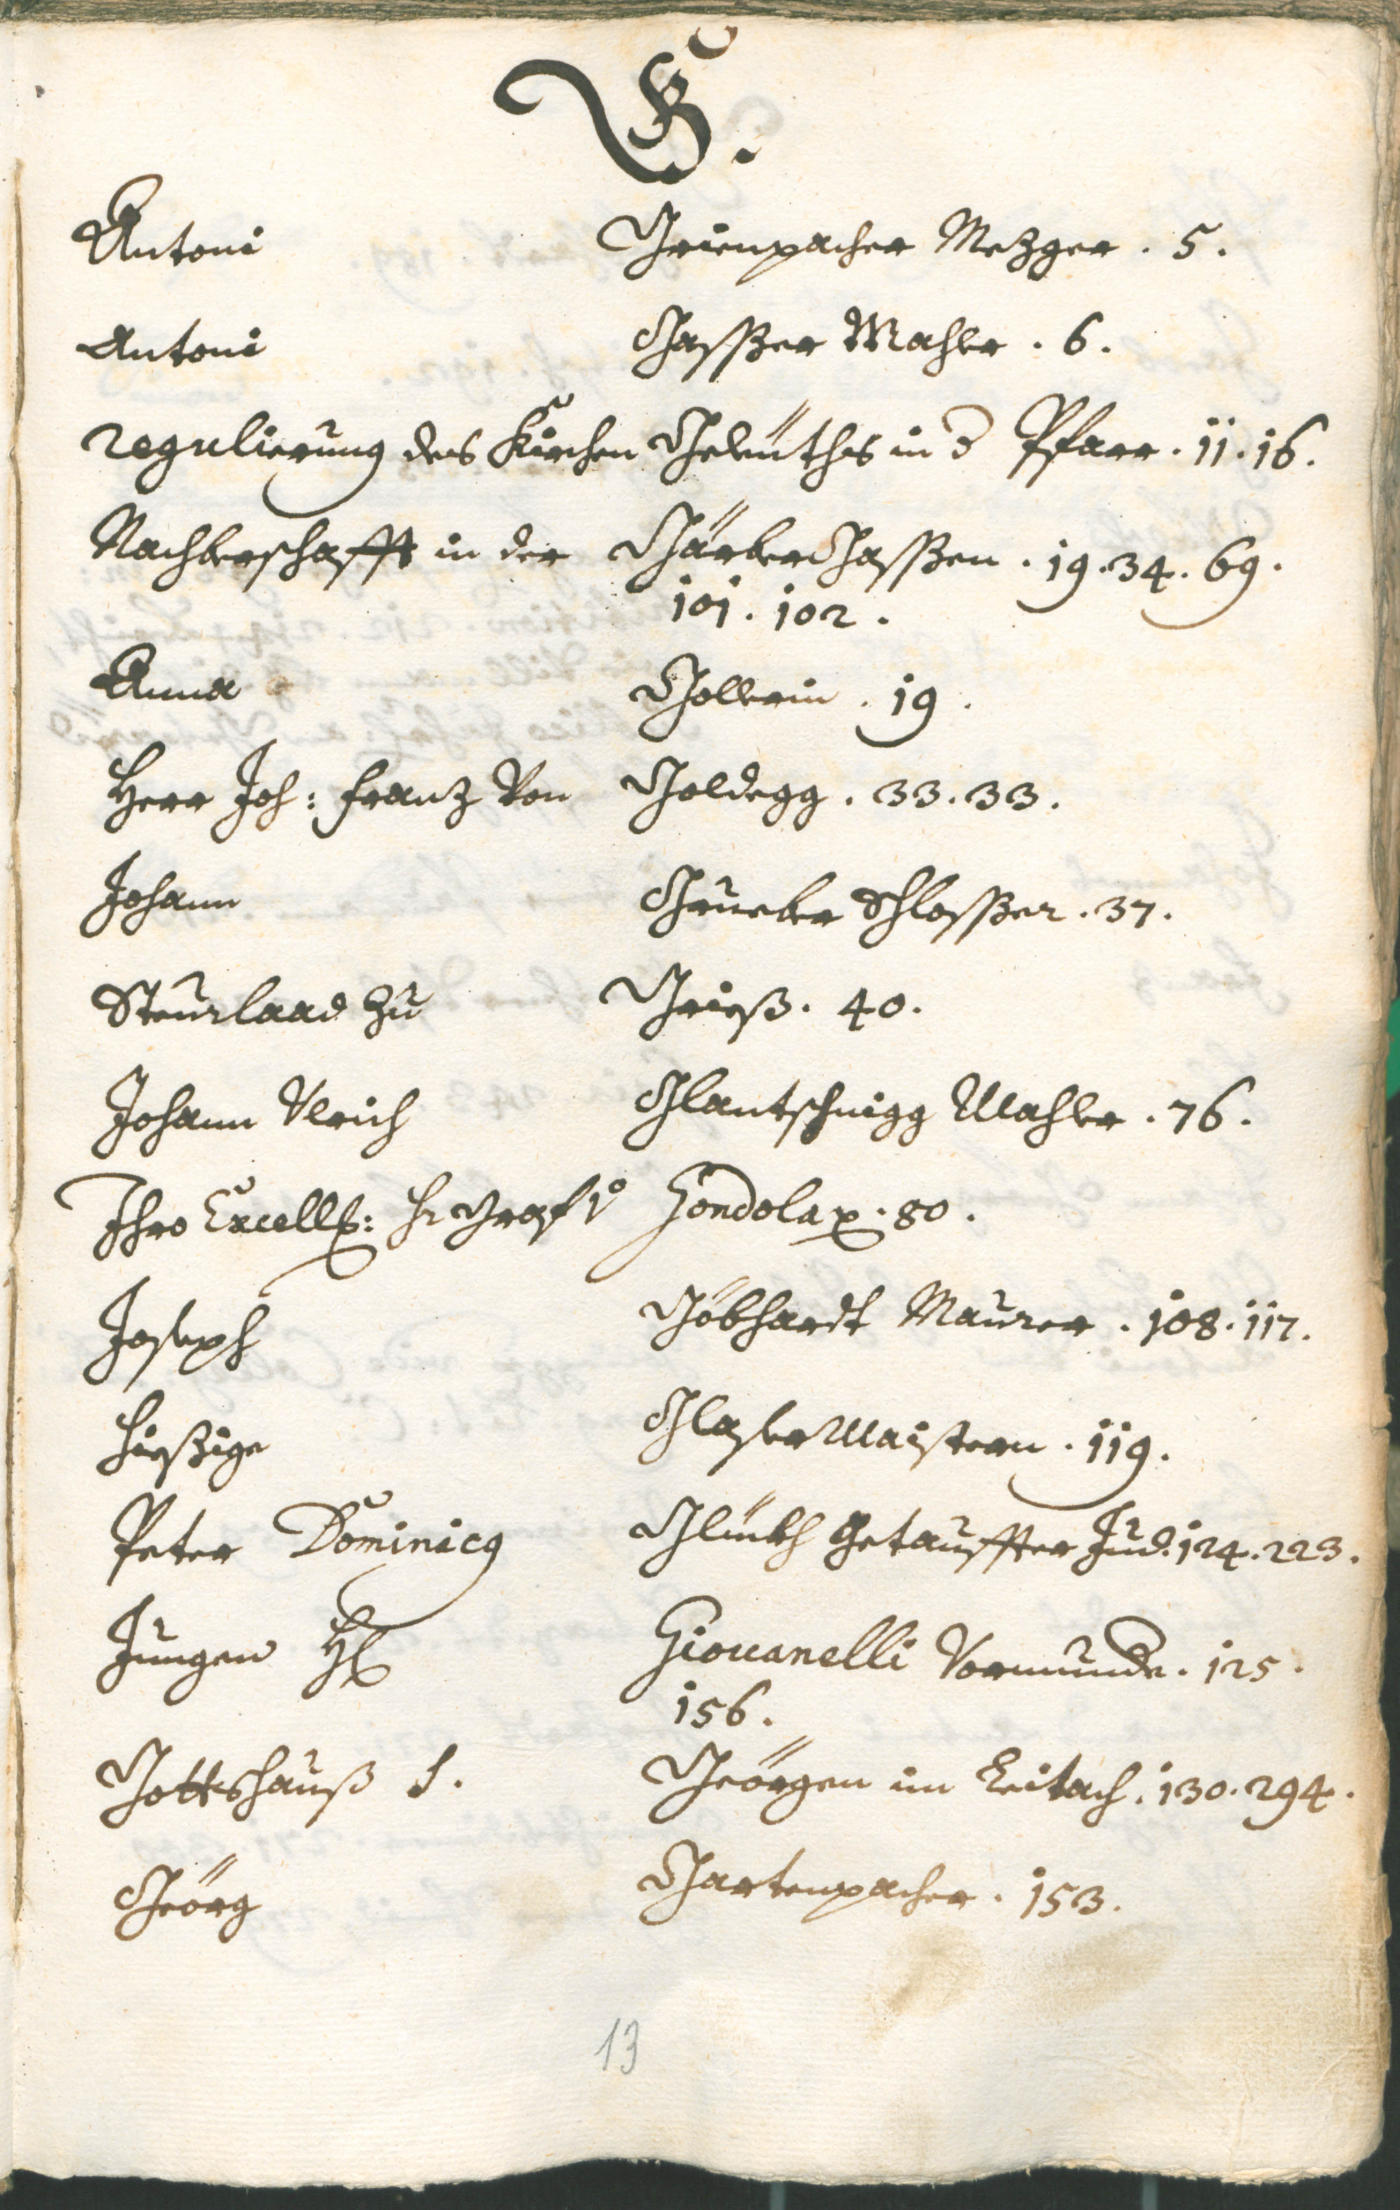 G.
Antoni Grienpacher Mezger . 5.
Antoni Gasßer Mahler . 6.
regulierung des Kirchen Geleüths in d Pfarr . 11 . 16.
Nachberschafft in der Gärber Gasßen . 19 . 34 . 69.
101 . 102.
Anna Gollerin . 19.
Herr Joh: Franz Von Goldegg . 33 . 33.
Johann Grueber Schlosßer . 37.
Steurlaad zu Grieß . 40.
Johann Ulrich Glantschnigg Mahler . 76.
Ihro Excell: Hr Graf v Gondola . 80.
Joseph Göbhardt Maurer . 108 . 117.
Hießige Glaser Maistern . 119.
Peter Dominicg Glückh Getauffter Jud . 124 . 223.
Jungen H Giovanelli Vormunde . 125.
156.
Gottshauß S. Geörgen im Leitach . 130 . 294.
Geörg Gartenpacher . 153.
13